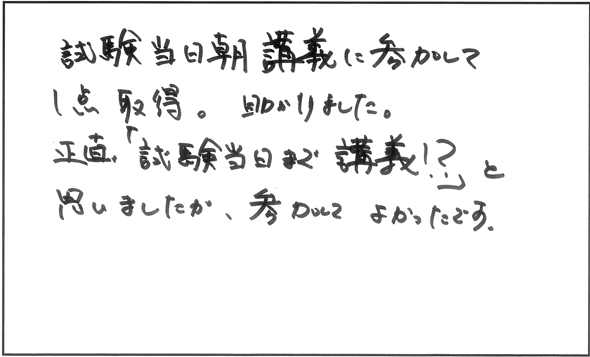 試験当日朝講義に参加して
1点取得。助かりました。
正直、「試験当日まで講義!?」と
思いましたが、参加して よかったです。